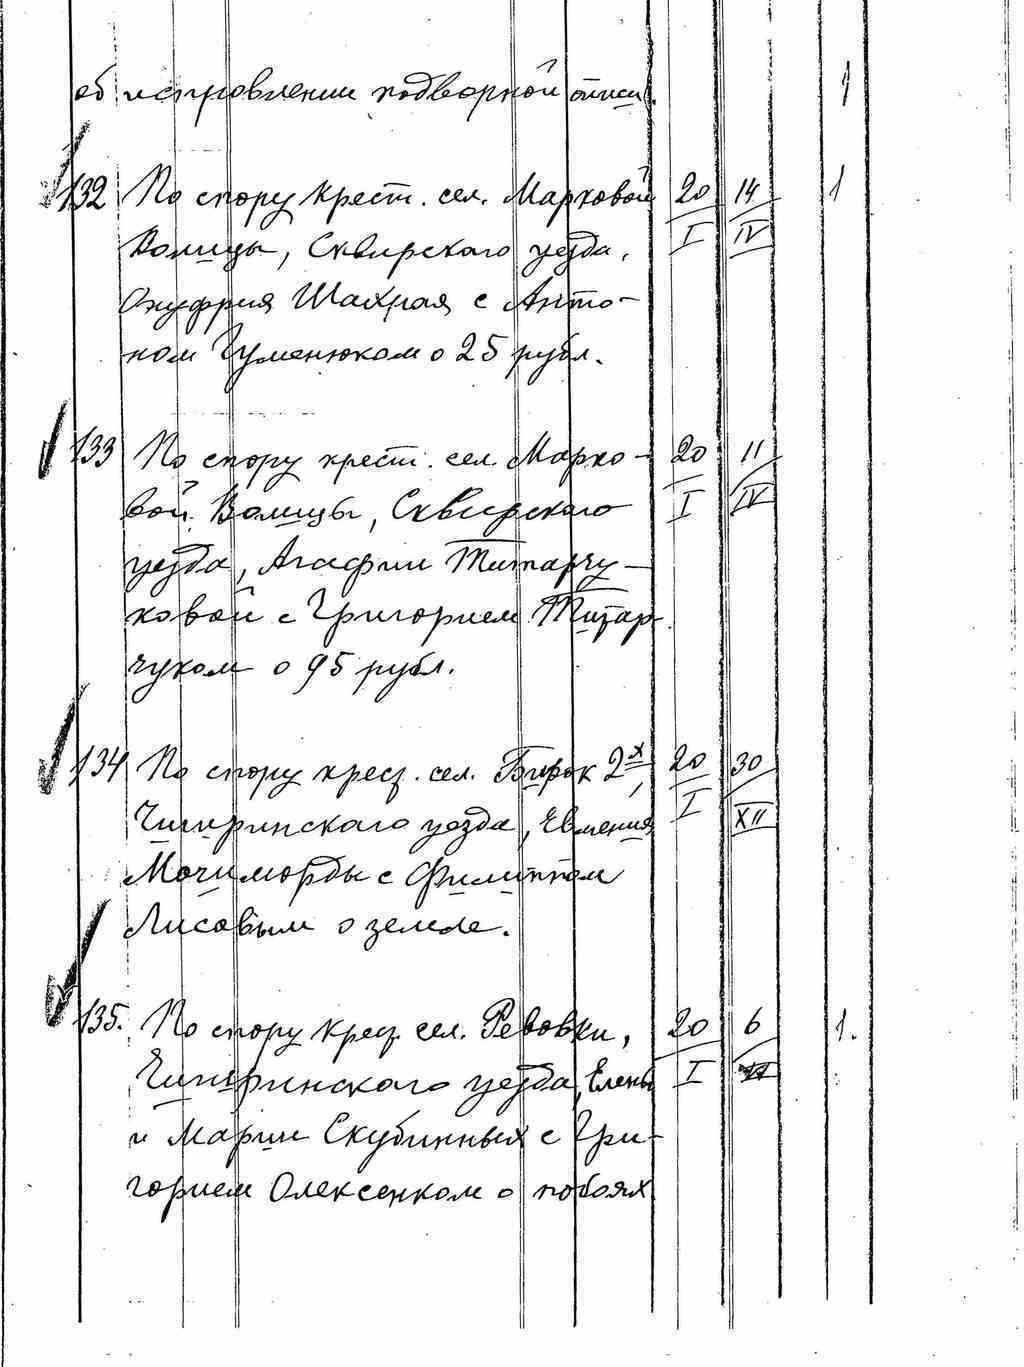 об исправлении подворной описи. 1
132 По спору крест. сел. Марковой 20 14 1
Волицы, Сквирского уезда, I IV
Онуфрия Шахрая с Анто-
ном Гуменюком о 25 рубл.
133 По спору крест. сел. Марко- 20 11
вой Волицы, Сквирского I IV
уезда, Агафии Титарчу-
ковой с Григорием Титар-
чуком о 95 рубл.
134 По спору крест. сел. Бирок 2х, 20 30
Чигиринского уезда, Евмения I XII
Мочиморды с Филиппом
Лисовым о земле.
135. По спору крест. сел. Ревовки, 20 6 1.
Чигиринского уезда, Елены I
и Марии Скубинных с Гри-
горием Олексенком о побоях